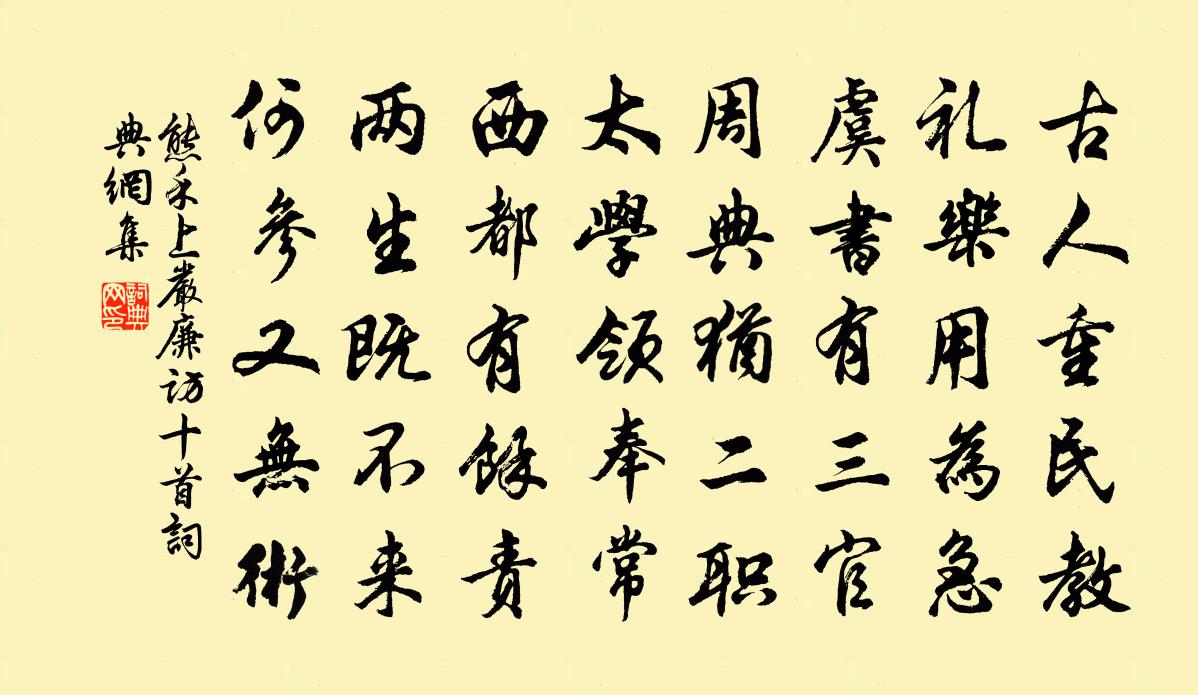 古人重民教
礼樂用為急
虞書有三官
周典猶二职
太學領奉常
西都有餘责
两生既不来
何參又無術
熊禾上嚴廉訪十首詞
典網集
詞典网印